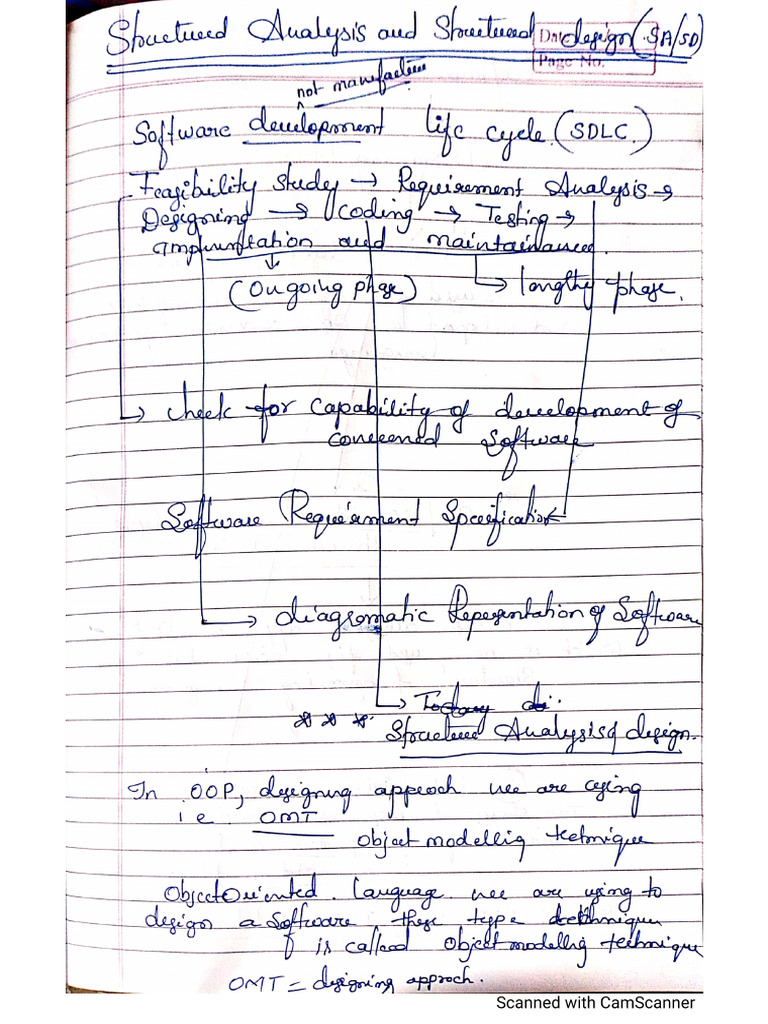 Structured Analysis and Structured design (SA/SD)
Date
Page No.
not manufacture
Software development life cycle (SDLC.)
Feasibility study → Requirement Analysis →
Designing → Coding → Testing →
implementation and maintainance.
(Ongoing phase) → lengthy phase.
→ Check for capability of development of
concerned Software
Software Requirement Specification
→ diagramatic Representation of Software
→ Today
*** Structured Analysis & design.
In OOP, designing approch we are using
i.e. OMT
object modellig technique
Object Oriented Language we are using to
design a Software these type technique
is called Object modellig technique
OMT = designing approch.
Scanned with CamScanner